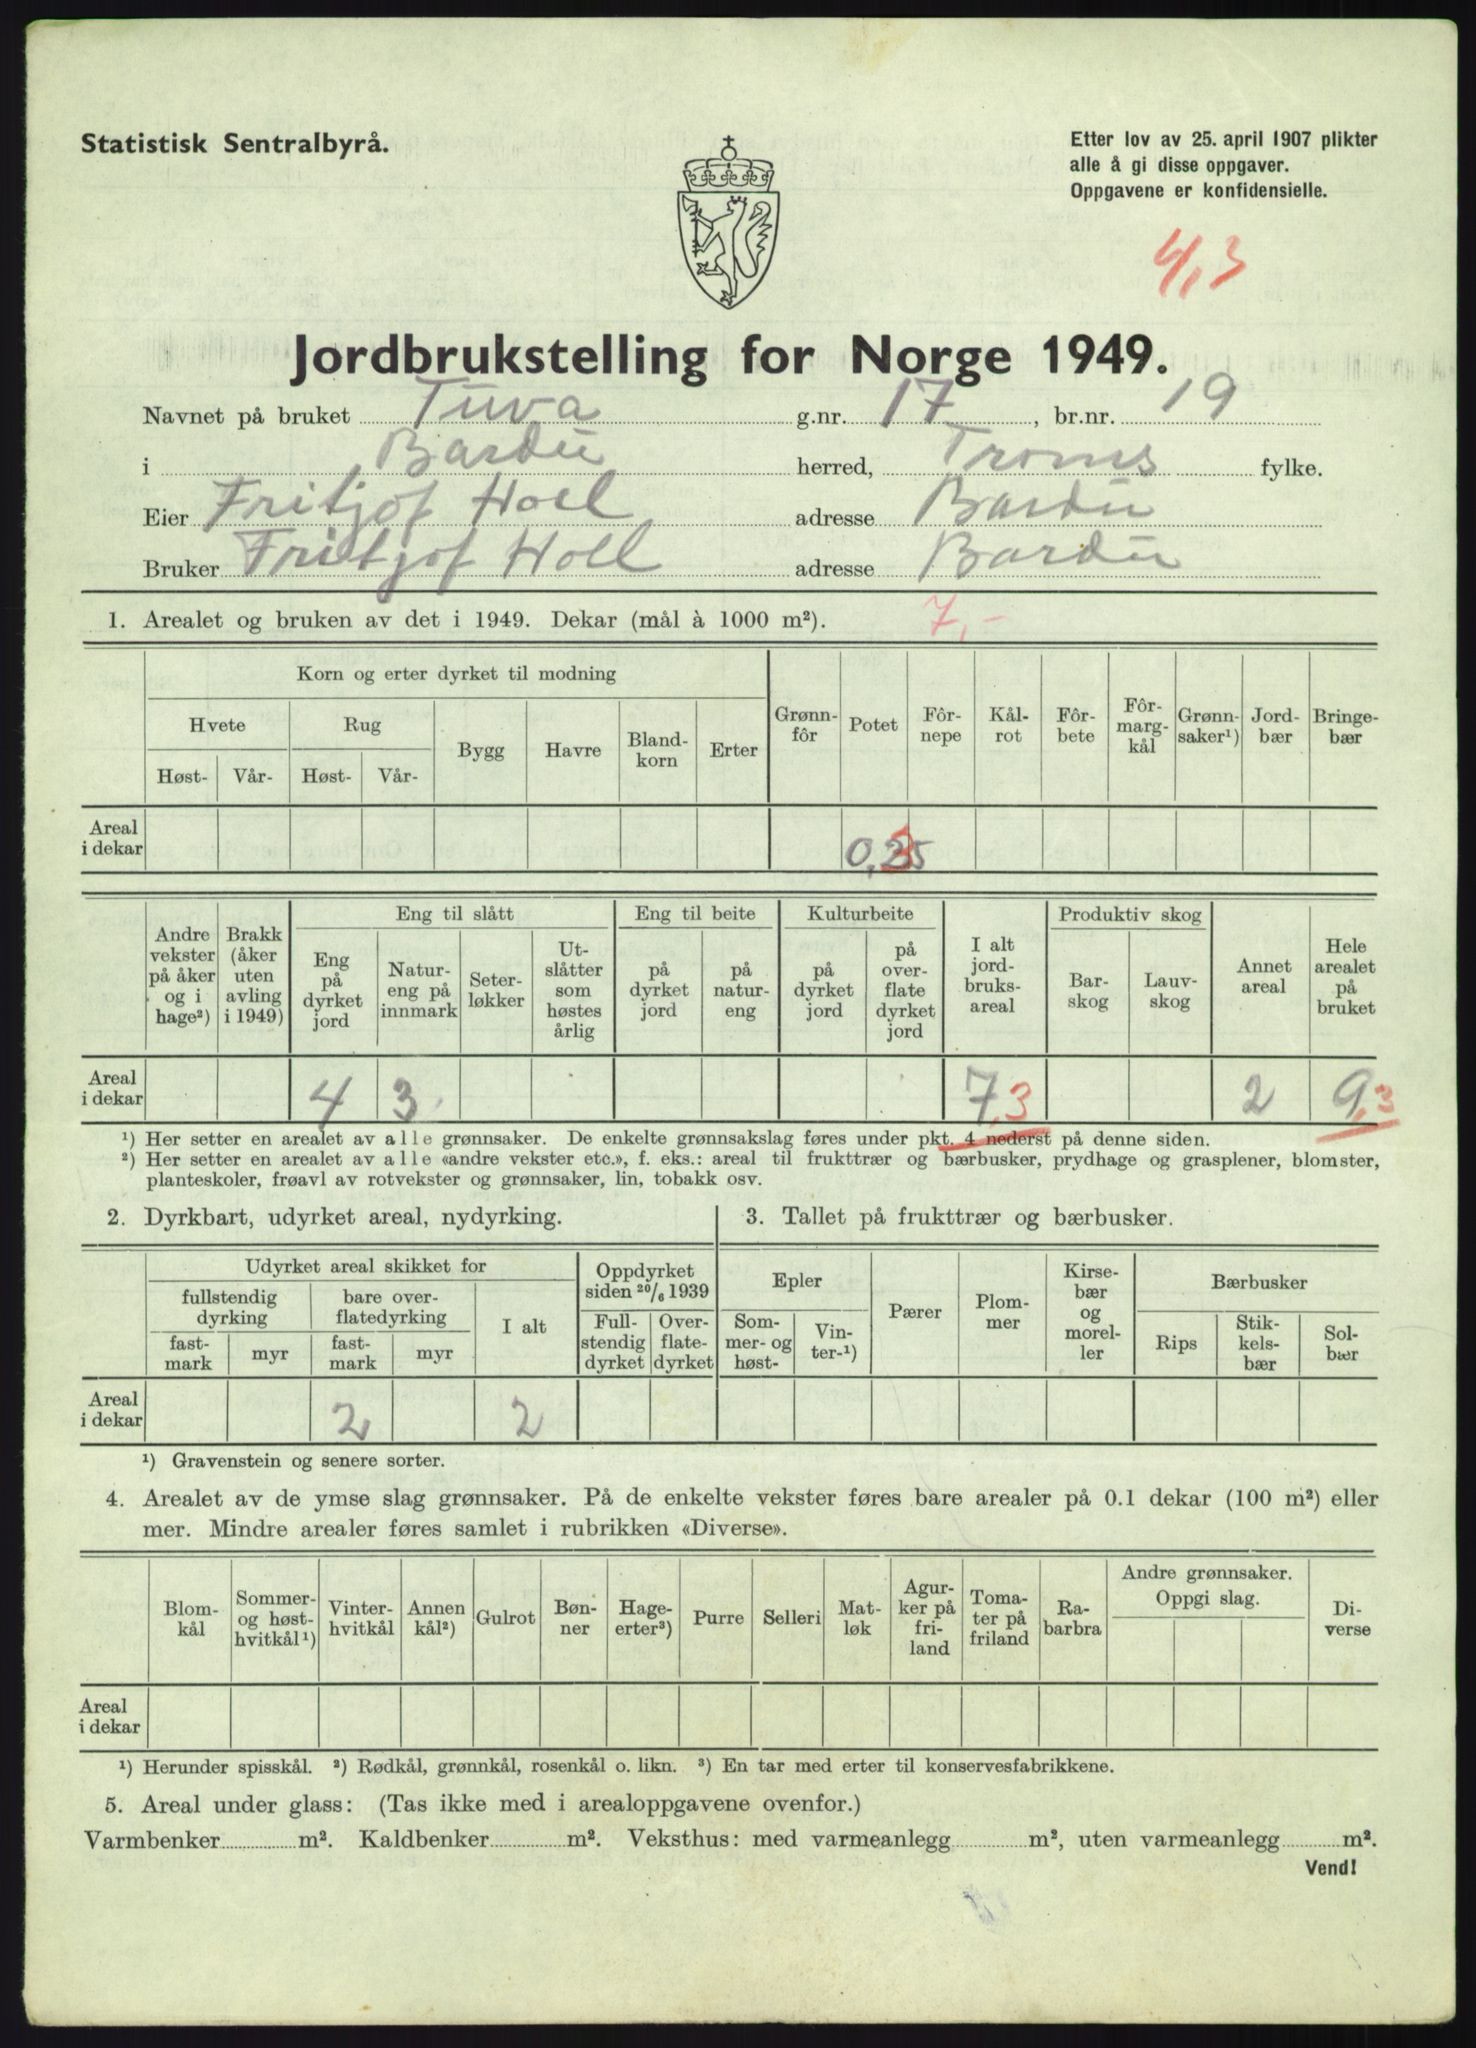 Statistisk Sentralbyrå.
Etter lov av 25. april 1907 plikter
alle å gi disse oppgaver.
Oppgavene er konfidensielle.
4,3
Jordbrukstelling for Norge 1949.
Navnet på bruket Tuva g.nr. 17, br.nr. 19
i Bardu herred, Troms fylke.
Eier Fritjof Holl adresse Bardu
Bruker Fritjof Holl adresse Bardu
1. Arealet og bruken av det i 1949. Dekar (mål à 1000 m²). 7,-
Korn og erter dyrket til modning
Hvete Rug Bygg Havre Bland-korn Erter Grønn-fôr Potet Fôr-nepe Kål-rot Fôr-bete Fôr-marg-kål Grønn-saker¹) Jord-bær Bringe-bær
Høst- Vår- Høst- Vår-
Areal i dekar 0,25 3
Andre vekster på åker og i hage²) Brakk (åker uten avling i 1949) Eng til slått Eng til beite Kulturbeite I alt jord-bruks-areal Produktiv skog Annet areal Hele arealet på bruket
Eng på dyrket jord Natur-eng på innmark Seter-løkker Ut-slåtter som høstes årlig på dyrket jord på natur-eng på dyrket jord på over-flate dyrket jord Bar-skog Lauv-skog
Areal i dekar 4 3 7,3 2 9,3
¹) Her setter en arealet av alle grønnsaker. De enkelte grønnsakslag føres under pkt. 4 nederst på denne siden.
²) Her setter en arealet av alle «andre vekster etc.», f. eks.: areal til frukttrær og bærbusker, prydhage og grasplener, blomster,
planteskoler, frøavl av rotvekster og grønnsaker, lin, tobakk osv.
2. Dyrkbart, udyrket areal, nydyrking.
Udyrket areal skikket for Oppdyrket siden 20/6 1939
fullstendig dyrking bare over-flatedyrking I alt Full-stendig dyrket Over-flate-dyrket
fast-mark myr fast-mark myr
Areal i dekar 2 2
3. Tallet på frukttrær og bærbusker.
Epler Pærer Plom-mer Kirse-bær og morel-ler Bærbusker
Som-mer- og høst- Vin-ter-¹) Rips Stik-kels-bær Sol-bær
¹) Gravenstein og senere sorter.
4. Arealet av de ymse slag grønnsaker. På de enkelte vekster føres bare arealer på 0.1 dekar (100 m²) eller
mer. Mindre arealer føres samlet i rubrikken «Diverse».
Blom-kål Sommer- og høst-hvitkål¹) Vinter-hvitkål Annen kål²) Gulrot Bøn-ner Hage-erter³) Purre Selleri Mat-løk Agur-ker på fri-land Toma-ter på friland Ra-barbra Andre grønnsaker. Oppgi slag. Di-verse
Areal i dekar
¹) Herunder spisskål. ²) Rødkål, grønnkål, rosenkål o. likn. ³) En tar med erter til konservesfabrikkene.
5. Areal under glass: (Tas ikke med i arealoppgavene ovenfor.)
Varmbenker m². Kaldbenker m². Veksthus: med varmeanlegg m², uten varmeanlegg m².
Vend!